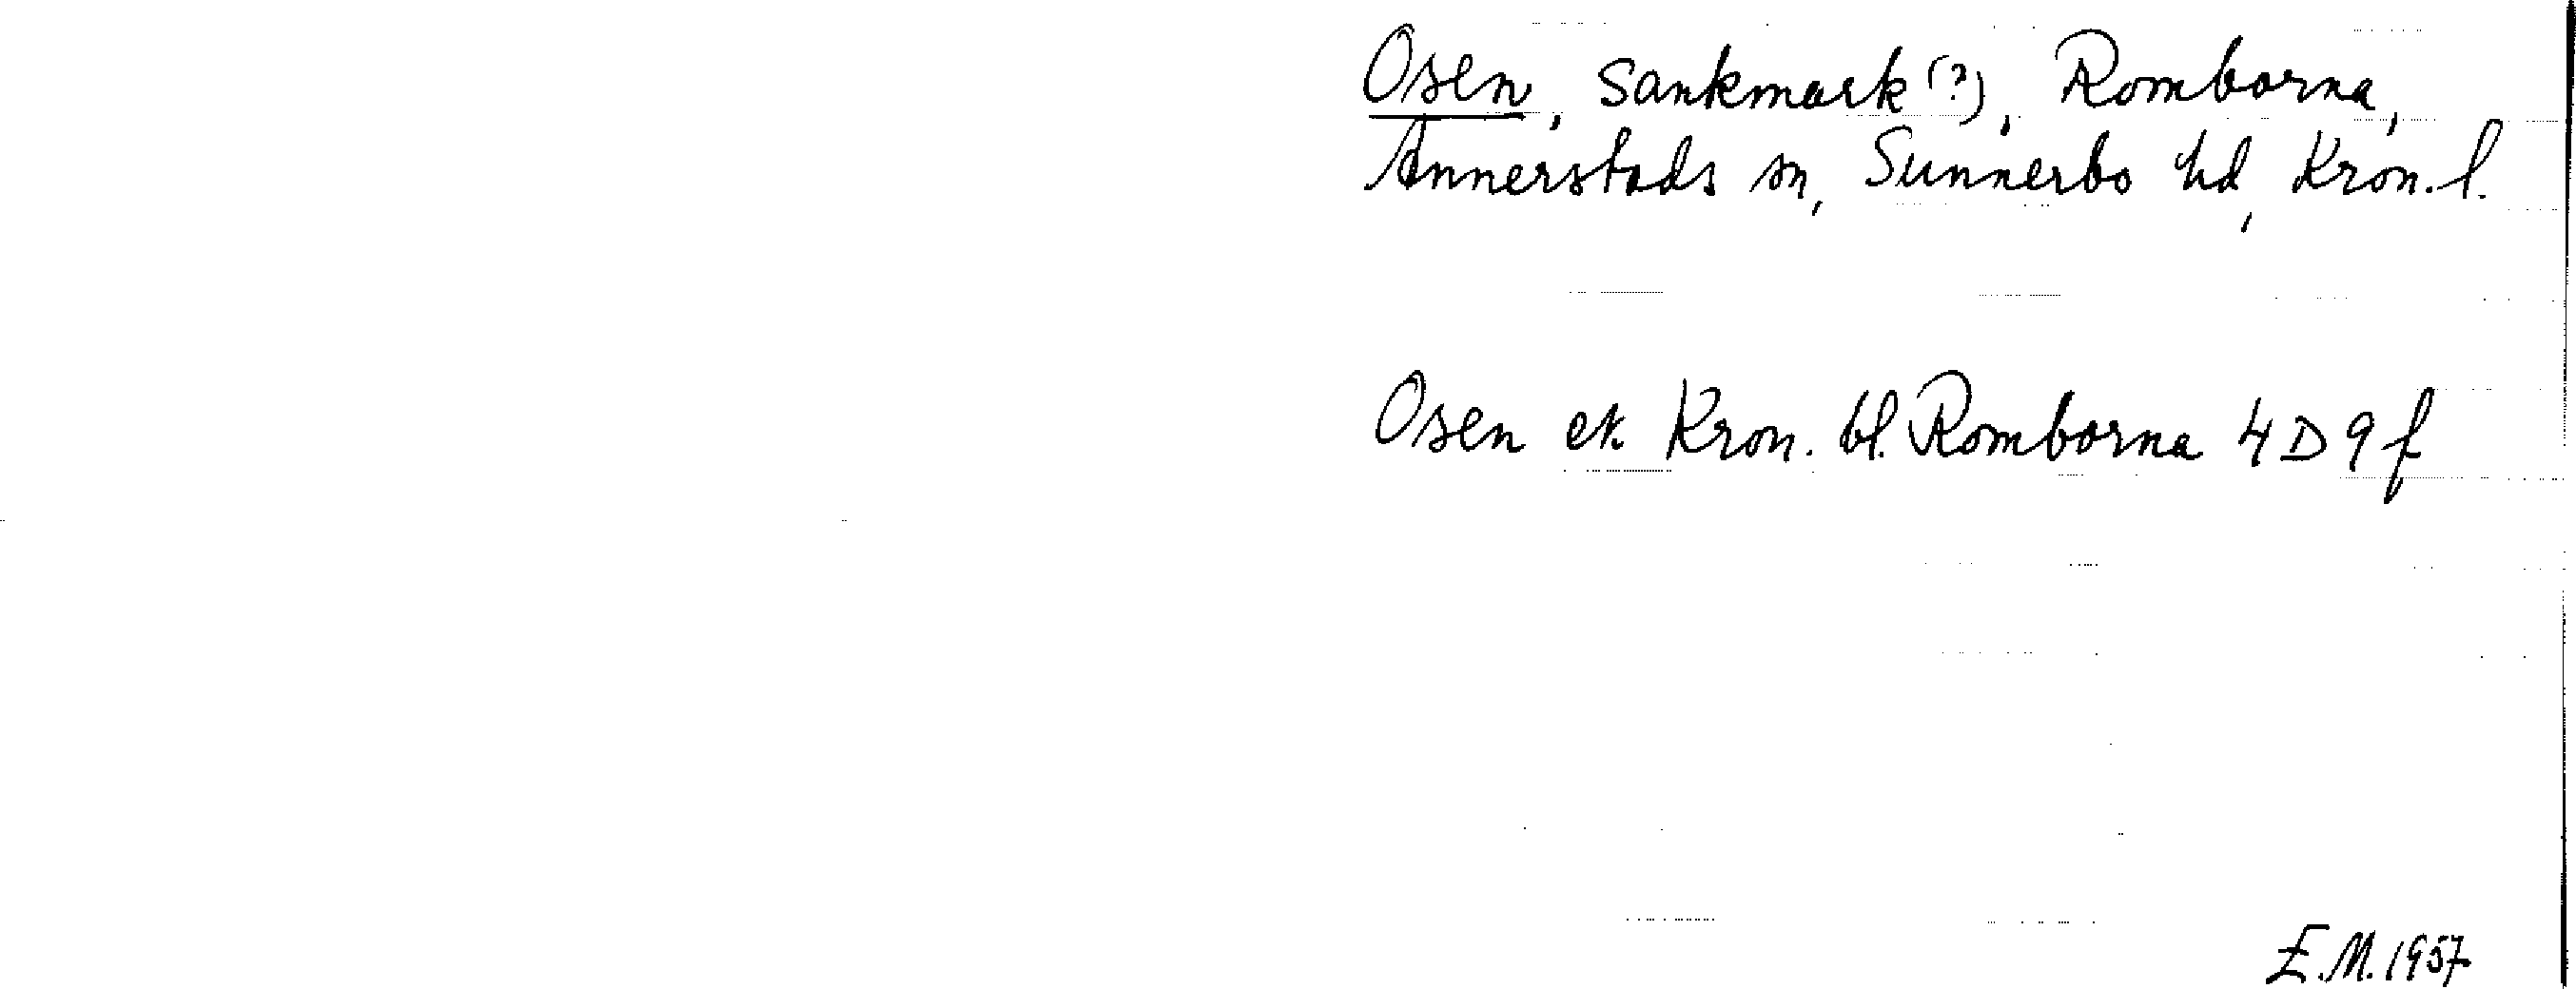 Osen, Sankmark (?), Romborna,
Annerstads sn, Sunnerbo hd, Kron. l.
Osen ek Kron. bl. Romborna 4D9f
E.M. 1957